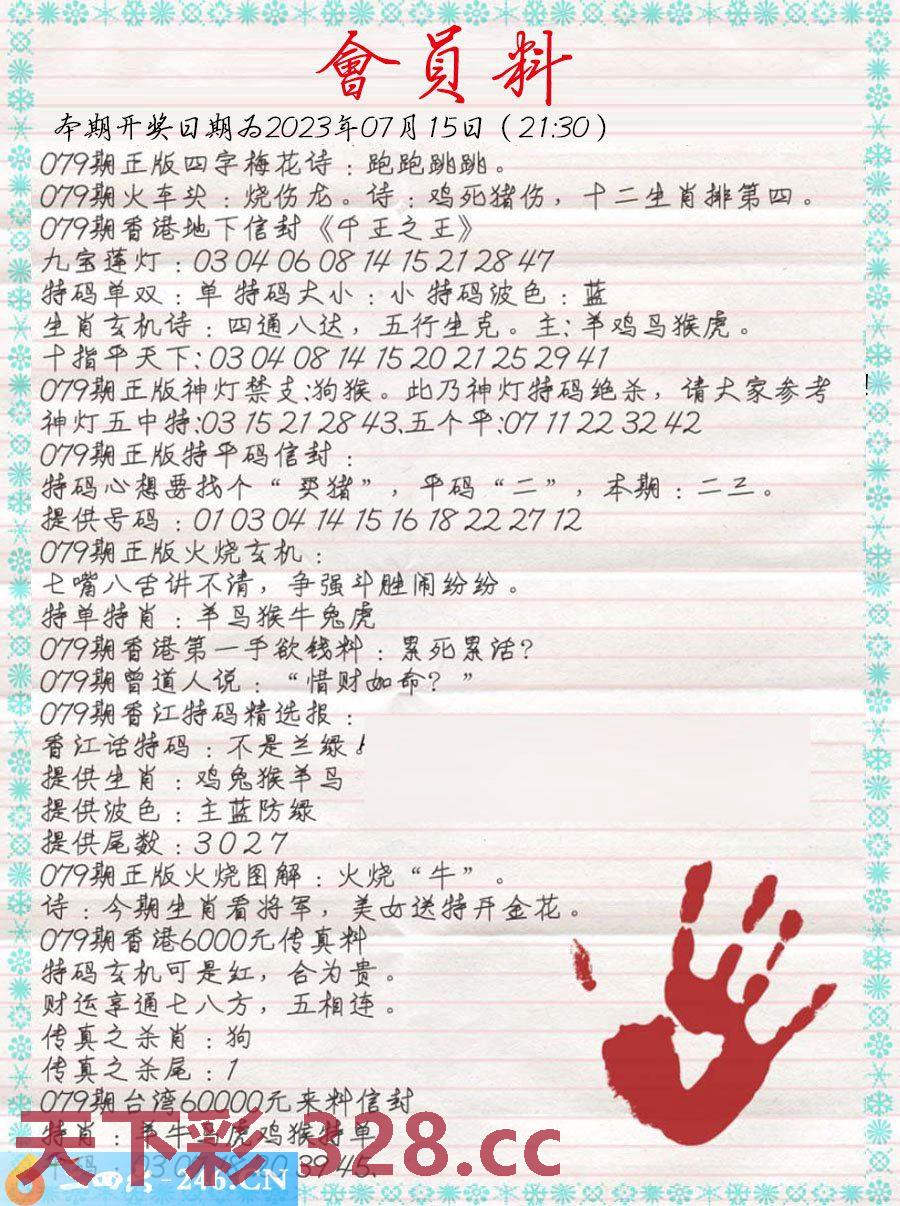 會員料
本期开奖日期为2023年07月15日（21:30）
079期正版四字梅花诗：跑跑跳跳。
079期火车头：烧伤龙。诗：鸡死猪伤，十二生肖排第四。
079期香港地下信封《千王之王》
九宝莲灯：03 04 06 08 14 15 21 28 47
特码单双：单 特码大小：小 特码波色：蓝
生肖玄机诗：四通八达，五行生克。主:羊鸡鸟猴虎。
十指平天下:03 04 08 14 15 20 21 25 29 41
079期正版神灯禁支:狗猴。此乃神灯特码绝杀，请大家参考!
神灯五中特:03 15 21 28 43、五个平:07 11 22 32 42
079期正版特平码信封：
特码心想要找个“买猪”，平码“二”，本期：二三。
提供号码：01 03 04 14 15 16 18 22 27 12
079期正版火烧玄机：
七嘴八舌讲不清，争强斗胜闹纷纷。
特单特肖：羊鸟猴牛兔虎
079期香港第一手欲钱料：累死累活?
079期曾道人说：“惜财如命？”
079期香江特码精选报：
香江话特码：不是兰绿!
提供生肖：鸡兔猴羊马
提供波色：主蓝防绿
提供尾数：3 0 2 7
079期正版火烧图解：火烧“牛”。
诗：今期生肖看将军，美女送特开金花。
079期香港6000元传真料
特码玄机可是红，合为贵。
财运享通七八方，五相连。
传真之杀肖：狗
传真之杀尾：1
079期台湾60000元来料信封
特肖：羊牛马虎鸡猴特单
39 45、
天下彩 328.cc
-246.CN